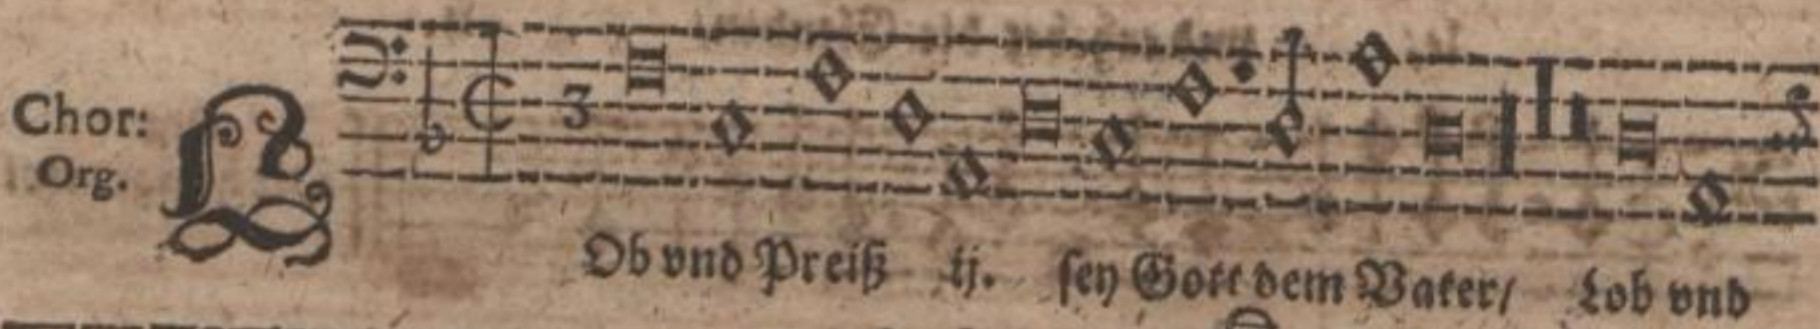 Chor:
Org.
3
LOb vnd Preiß ij. sey Gott dem Vater/ Lob vnd